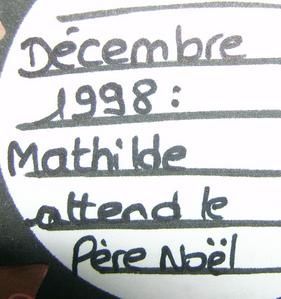 Décembre
1998 :
Mathilde
attend le
Père Noël